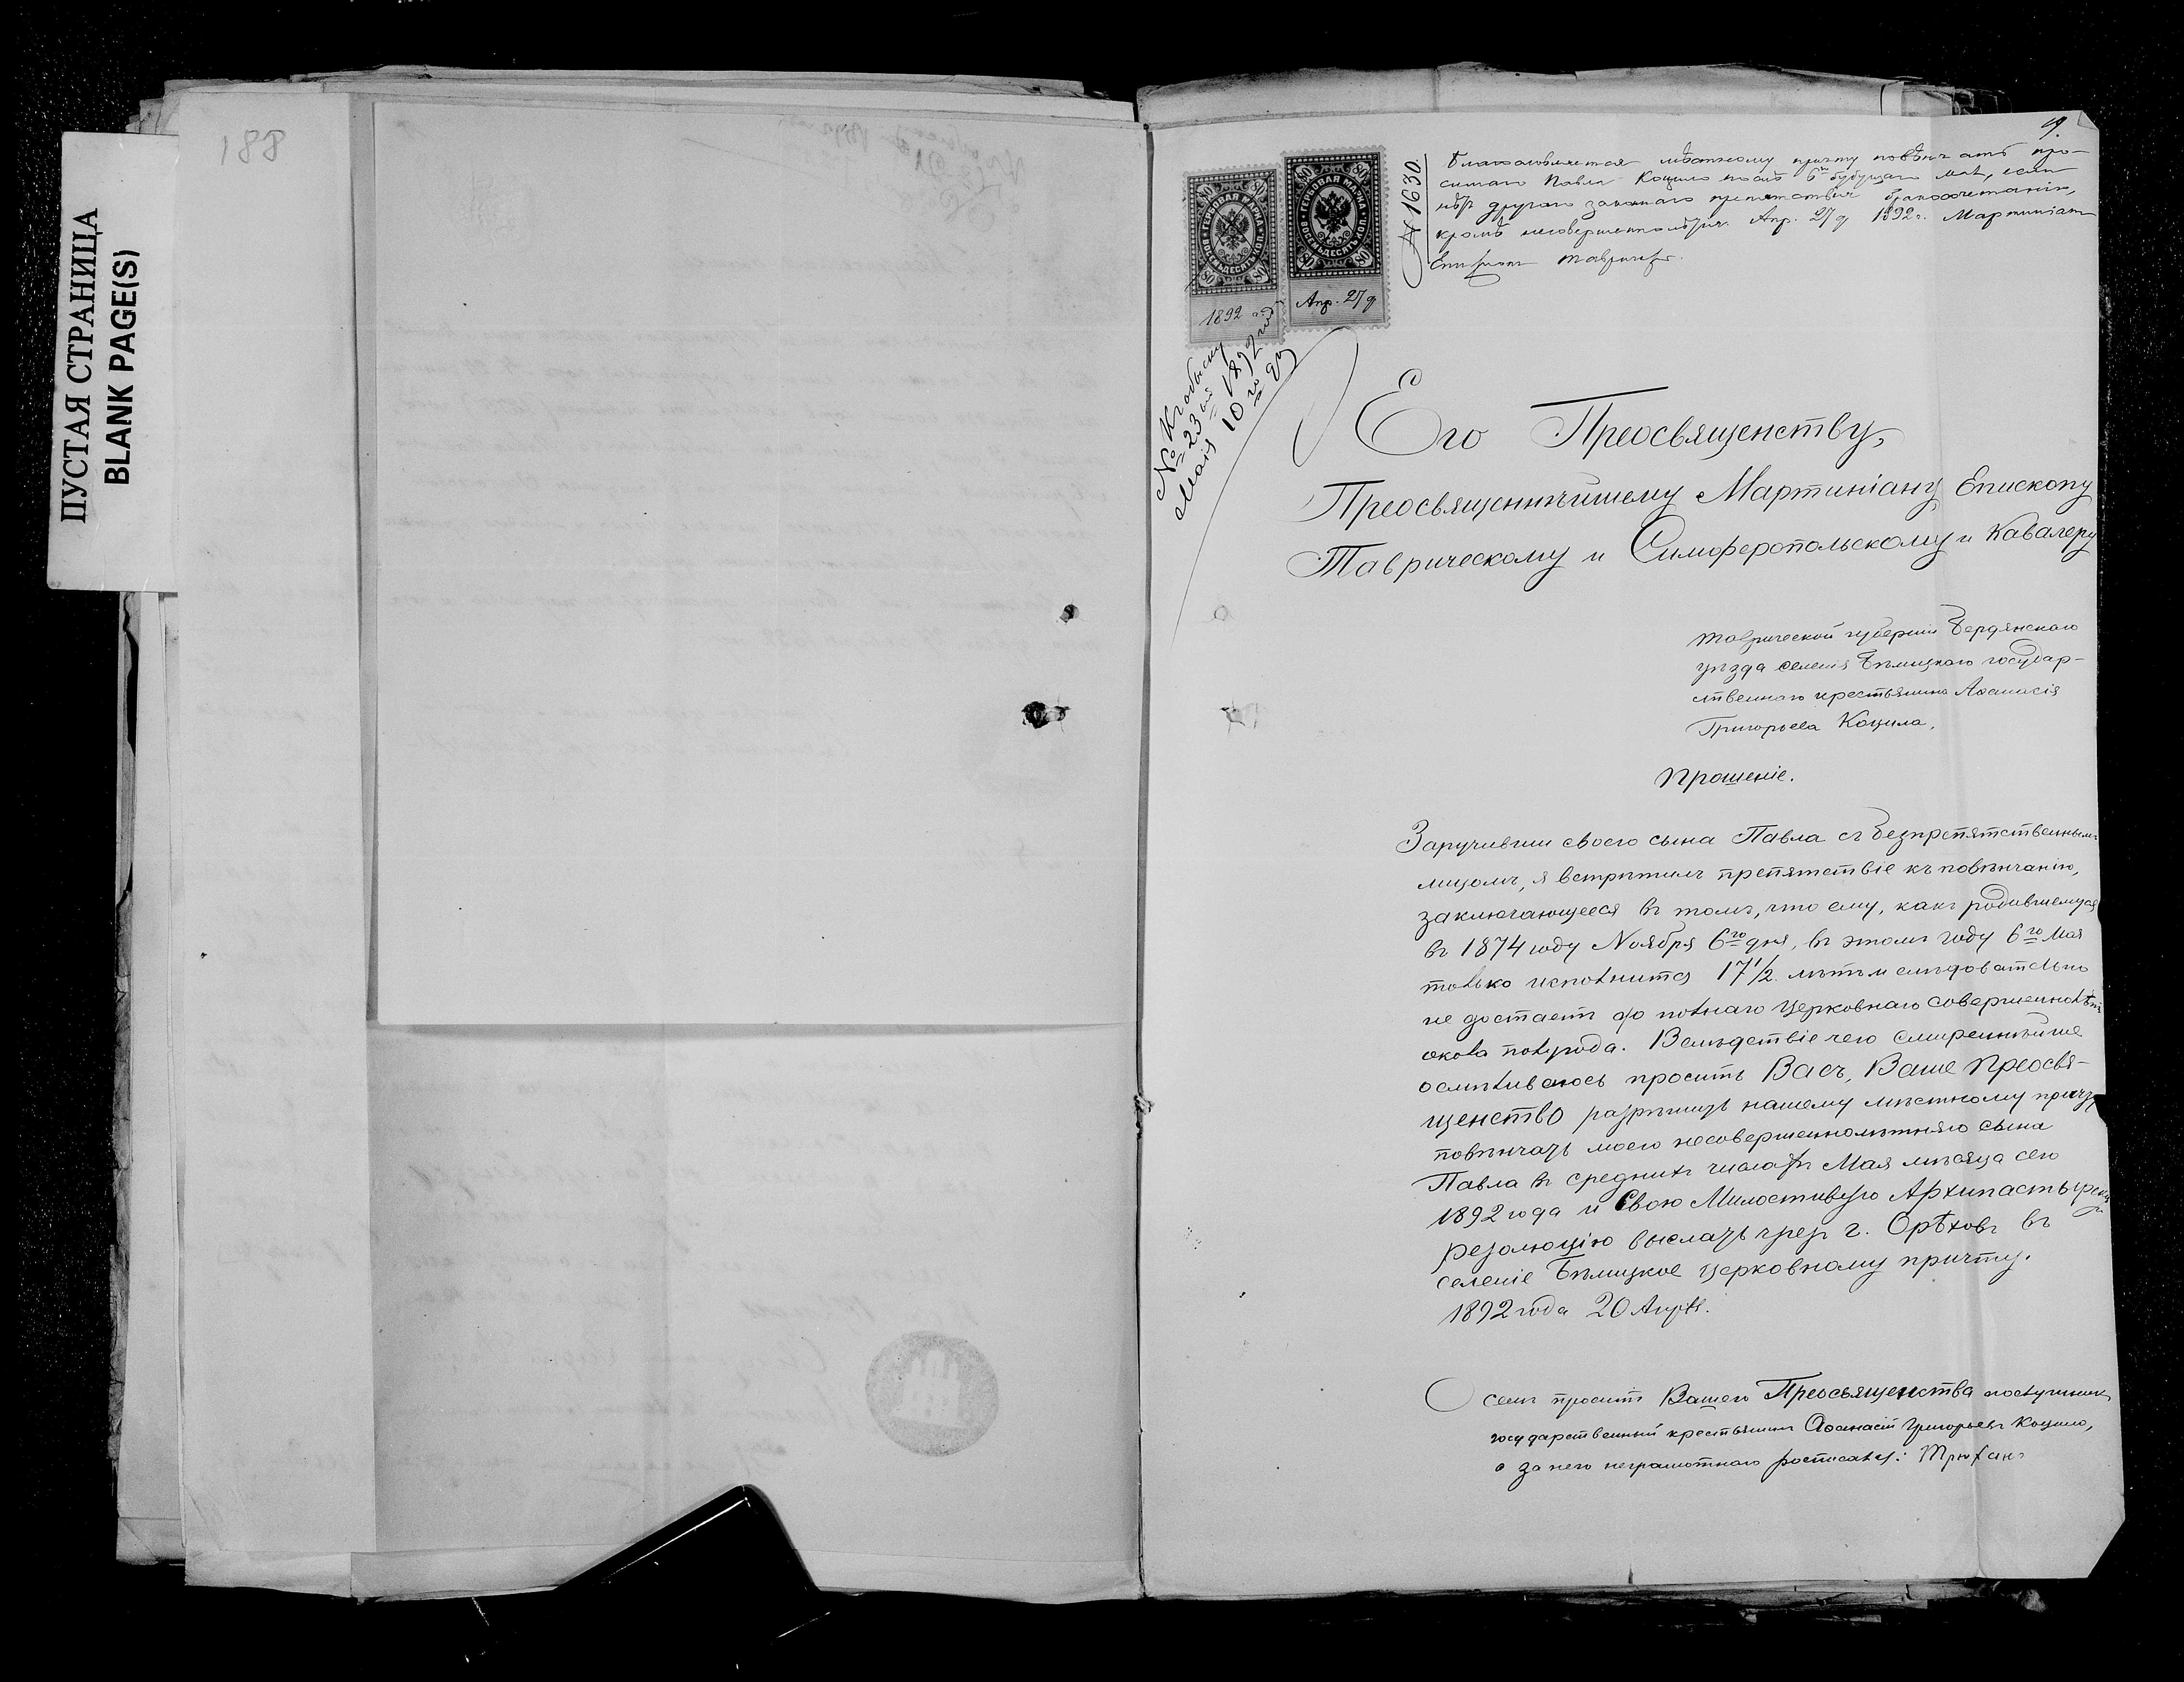 ПУСТАЯ СТРАНИЦА
BLANK PAGE(S)
188
9.
№ 1630.
Благословляется мѣстному причту повѣнчать про-
симаго Павла Коцило послѣ 6го будущаго мая, если
нѣтъ другаго законнаго препятствія бракосочетанію,
кромѣ несовершеннолѣтія. Апр. 27 д 1892 г. Мартиніанъ
Епископъ Тавричес.
ГЕРБОВАЯ МАРКА
ВОСЕМЬДЕСЯТЪ КОП.
80 80
80 80
1892 год
ГЕРБОВАЯ МАРКА
ВОСЕМЬДЕСЯТЪ КОП.
80 80
80 80
Апр. 27 д
№ К обыску
23ій 1892 год
Маія 10го дн
Его Преосвященству,
Преосвященнѣйшему Мартиніану Епископу
Таврическому и Симферопольскому и Кавалеру
Таврической губерніи Бердянскаго
уѣзда селенія Бѣлицкаго государ-
ственнаго крестьянина Аѳанасія
Григорьева Коцила,
Прошеніе.
Заручивши своего сына Павла съ безпрепятственнымъ
лицомъ, я встрѣтилъ препятствіе къ повѣнчанію,
заключающееся въ томъ, что ему, какъ родившемуся
въ 1874 году Ноября 6го дня, въ этомъ году 6го Мая
только исполнится 17 1/2 лѣтъ и слѣдовательно
не достаетъ до полнаго церковнаго совершеннолѣтія
окола полугода. Вслѣдствіе чего смиреннѣйше
осмѣливаюсь просить Васъ, Ваше Преосвя-
щенство разрѣшить нашему мѣстному причту
повѣнчать моего несовершеннолѣтняго сына
Павла въ среднихъ числахъ Мая мѣсяца сего
1892 года и Свою Милостивую Архипастырскую
резолюцію выслать чрезъ г. Орѣховъ въ
селеніе Бѣлицкое церковному причту.
1892 года 20 Апрѣл.
О семъ проситъ Вашего Преосвященства послушникъ
государственный крестьянинъ Аѳанасій Григорьевъ Коцило,
а за него неграмотнаго росписался: Трюханъ